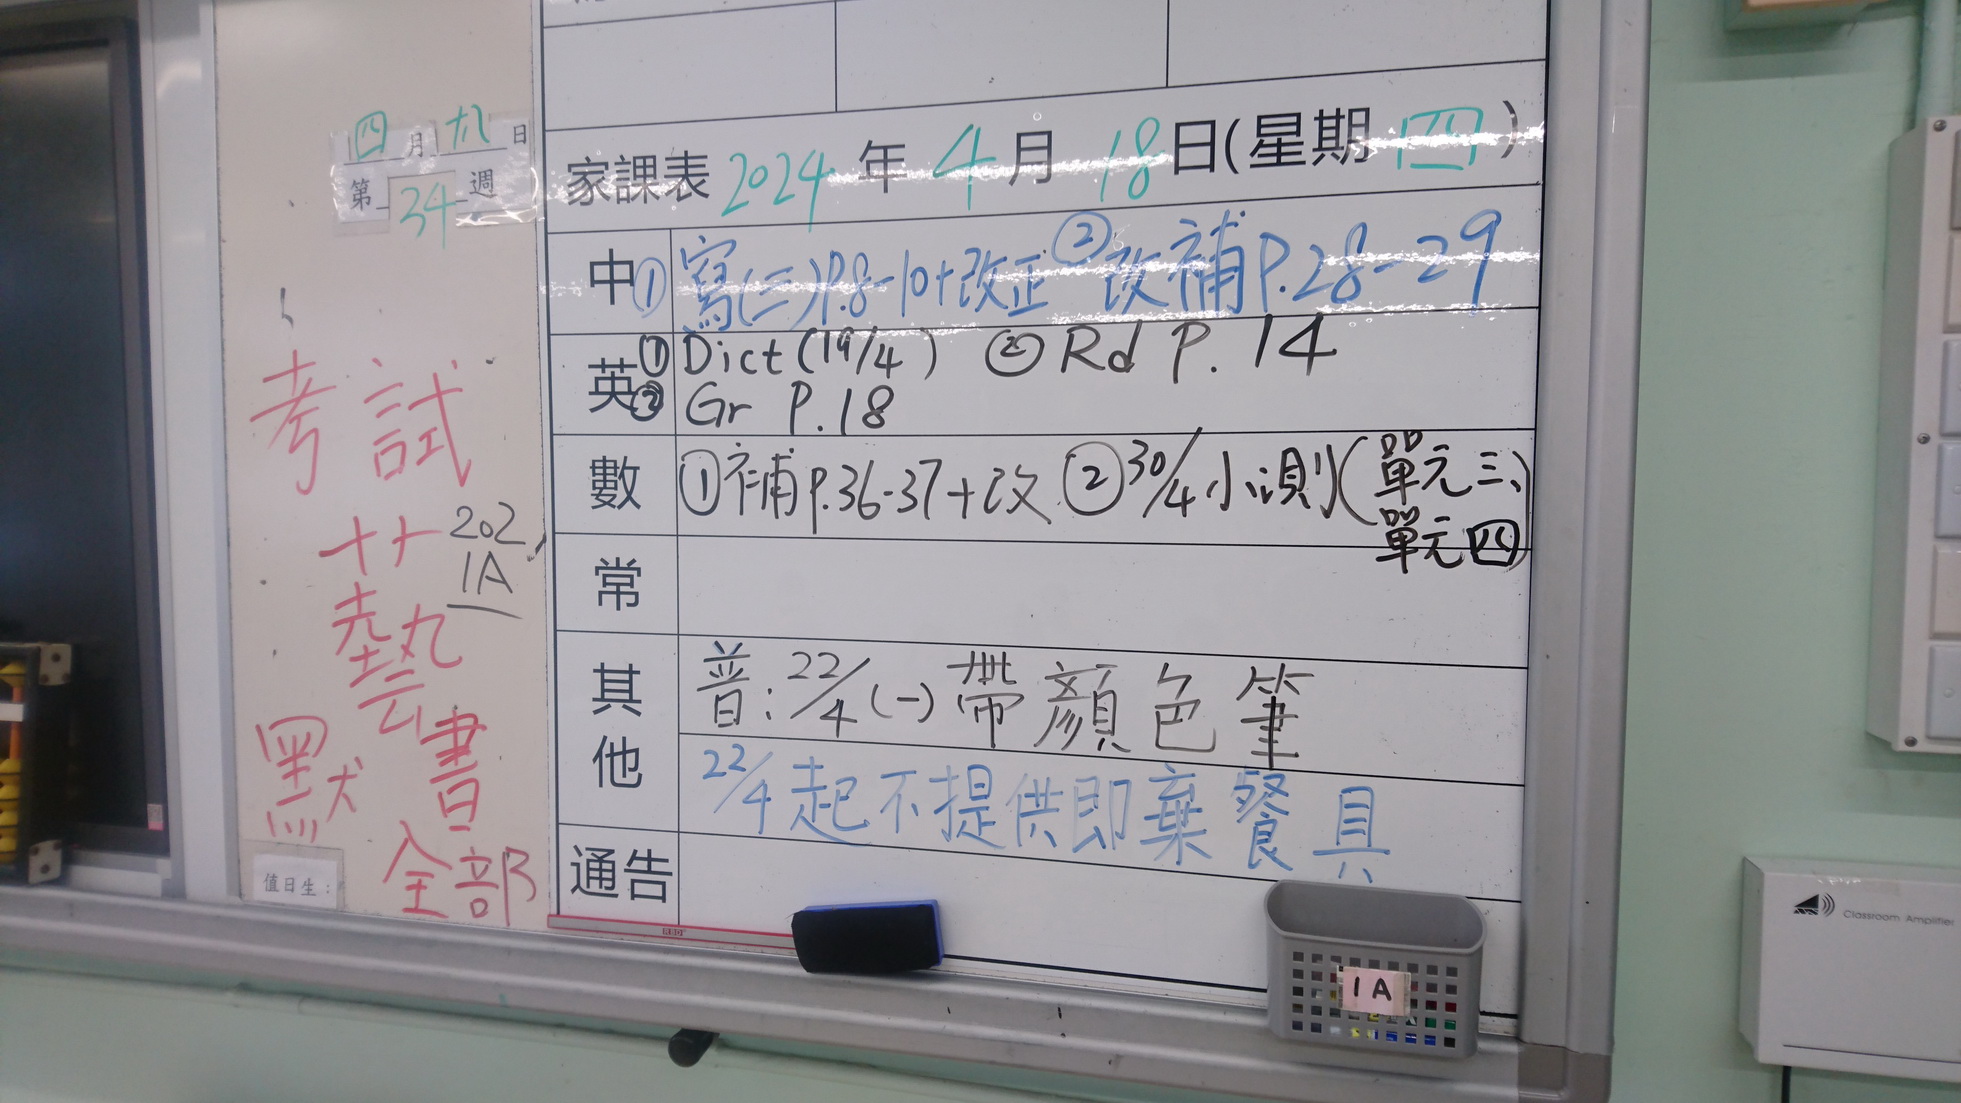 四月十八日
第34週
考試
202
1A
艹
藝
默書
全部
值日生:
家課表 2024年4月18日(星期四)
中 ①寫(三)P.8-10+改正 ②改補P.28-29
英 ①Dict(19/4) ②Rd P.14
② Gr P.18
數 ①補P.36-37+改 ②30/4小測(單元三、
單元四)
常
其他
普:22/4(一)帶顏色筆
22/4起不提供即棄餐具
通告
1A
Classroom Amplifier